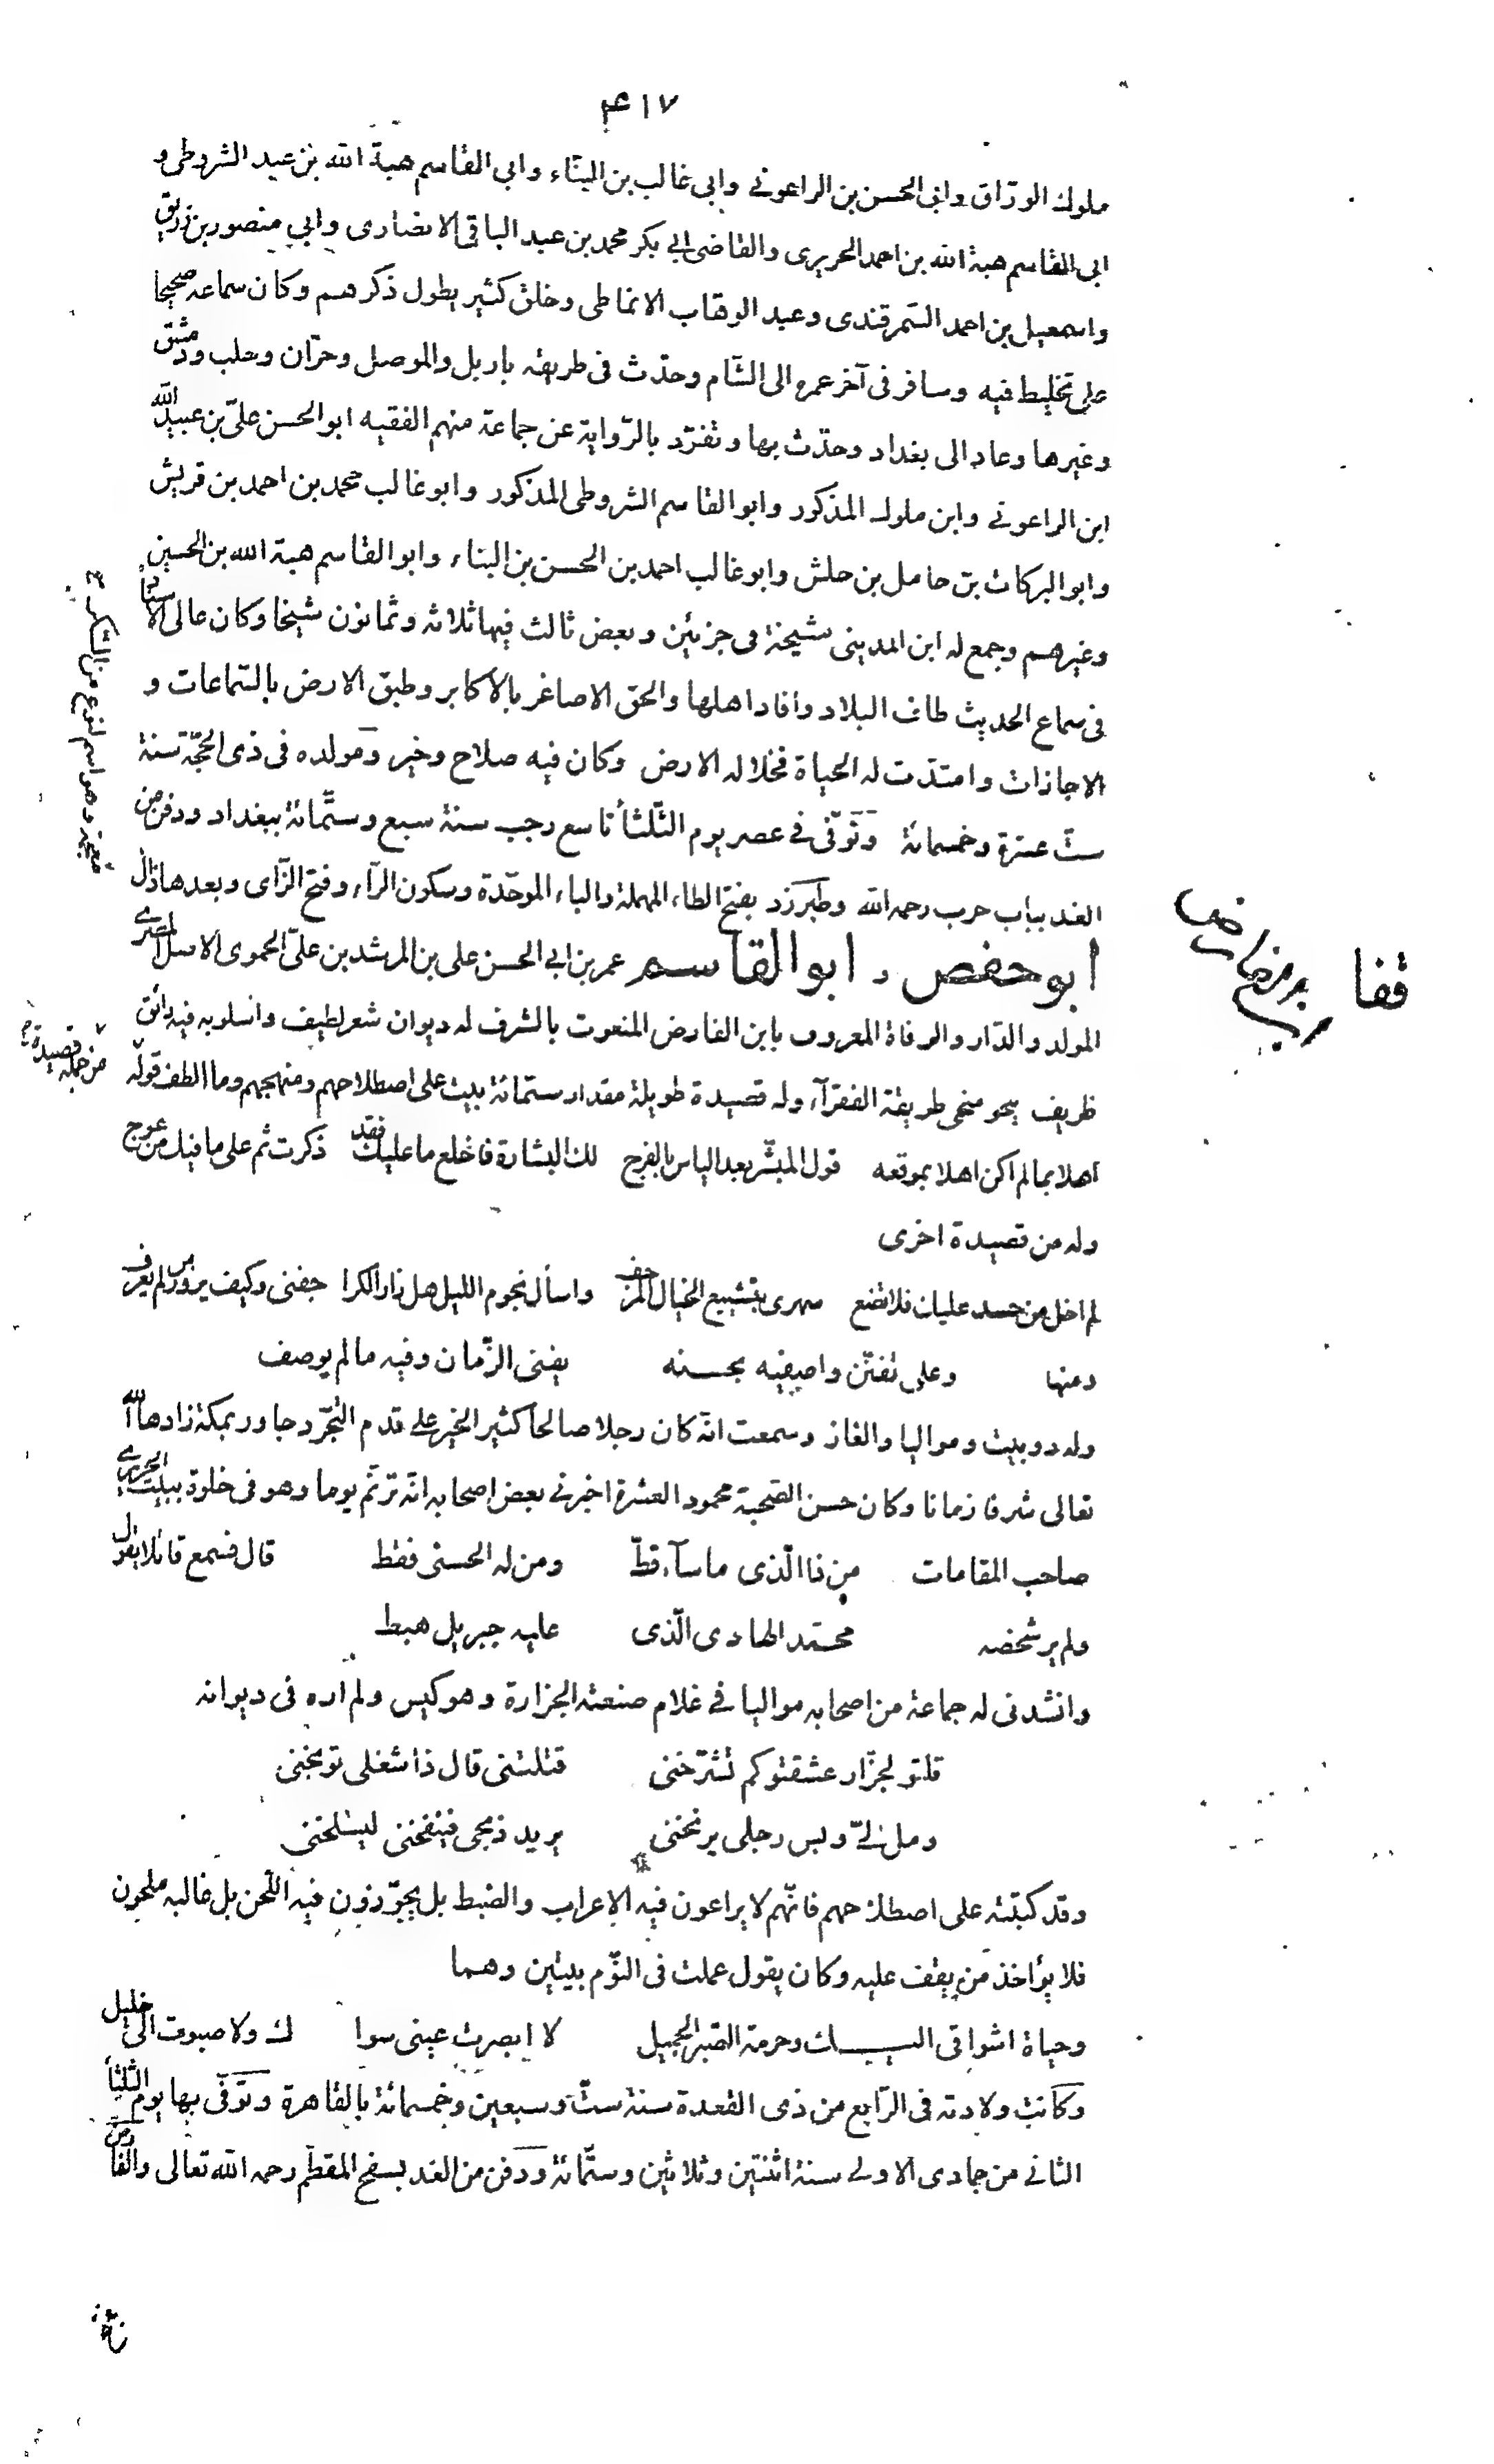 ۴۱۷
ملوك الورّاق وابى الحسن بن الراعونى وابى غالب بن البنّاء وابى القاسم هبة الله بن عبد الشروطى و
ابى القاسم هبة الله بن احمد الحريرى والقاضى ابى بكر محمد بن عبد الباقى الانصارى وابى منصور بن زريق
واسمعيل بن احمد السّمرقندى وعبد الوهّاب الانماطى وخلق كثير يطول ذكرهم وكان سماعه صحيحا
على تخليط فيه وسافر فى آخر عمره الى الشّام وحدّث فى طريقه باربل والموصل وحرّان وحلب ودمشق
وغيرها وعاد الى بغداد وحدّث بها وتفرّد بالرّواية عن جماعة منهم الفقيه ابو الحسن علىّ بن عبيد الله
ابن الراعونى وابن ملوك المذكور وابو القاسم الشروطى المذكور وابو غالب محمد بن احمد بن قريش
وابو البركات بن حامل بن حلش وابو غالب احمد بن الحسن بن البناء وابو القاسم هبة الله بن الحسين
وغيرهم وجمع له ابن المدينى مشيخة فى جزئين وبعض ثالث فيها ثلاثة وثمانون شيخا وكان عالى الاسناد
فى سماع الحديث طاف البلاد وافاد اهلها والحق الاصاغر بالاكابر وطبق الارض بالسّماعات و
الاجازات وامتدّت له الحياة فخلا له الارض وكان فيه صلاح وخير ومولده فى ذى الحجّة سنة
ستّ عشرة وخمسمائة وتوفّى فى عصر يوم الثّلثا تاسع رجب سنة سبع وستّمائة ببغداد ودفن من
الغد بباب حرب رحمه الله وطبرزد بفتح الطاء المهملة والباء الموحّدة وسكون الرّاء وفتح الزّاى وبعدها ذال
معجمة وهو اسم لنوع من السّكر
ابو حفص وابو القاسم عمر بن ابى الحسن على بن المرشد بن علىّ الحموى الاصل المصرى
المولد والدّار والوفاة المعروف بابن الفارض المنعوت بالشرف له ديوان شعر لطيف واسلوبه فيه رائق
ظريف ينحو منحى طريقة الفقرآء وله قصيدة طويلة مقدار ستّمائة بيت على اصطلاحهم ومنهجهم وما الطف قوله
من جملة قصيدة
اهلا بما لم اكن اهلا بموقعه قول المبشّر بعد الياس بالفرج لك البشارة فاخلع ما عليك فقد ذكرت ثم على ما فيك من عوج
وله من قصيدة اخرى
لم اخل من حسد عليك فلا تضع سهرى بتشييع الخيال المرجف واسأل نجوم الليل هل زار الكرا جفنى وكيف يزور من لم يعرف
ومنها وعلى تفنّن واصفيه بحسنه يفنى الزّمان وفيه ما لم يوصف
وله دوبيت ومواليا والغاز وسمعت انّه كان رجلا صالحا كثير الخير على قدم التجرّد جاور بمكة زادها الله
تعالى شرفا زمانا وكان حسن الصّحبة محمود العشرة اخبرنى بعض اصحابه انّه ترنّم يوما وهو فى خلوة ببيت الحريرى
صاحب المقامات من ذا الّذى ما سآء قطّ ومن له الحسنى فقط قال فسمع قائلا يقول
ولم ير شخصه محمّد الهادى الّذى عليه جبريل هبط
وانشدنى له جماعة من اصحابه مواليا فى غلام صنعته الجزارة وهو كيس ولم اره فى ديوانه
قلتو لجزّار عشقتو كم تشرّحنى قتلتنى قال ذا شغلى توبّخنى
ومل الىّ وبس رجلى يربخنى يريد ذبحى فينفخنى ليسلخنى
وقد كتبته على اصطلاحهم فانّهم لا يراعون فيه الاعراب والضبط بل يجوّزون فيه اللّحن بل غالبه ملحون
فلا يؤاخذ من يقف عليه وكان يقول عملت فى النّوم بيتين وهما
وحياة اشواقى اليـــك وحرمة الصّبر الجميل لا ابصرت عينى سوا ك ولا صبوت الى خليل
وكانت ولادته فى الرّابع من ذى القعدة سنة ستّ وسبعين وخمسمائة بالقاهرة وتوفّى بها يوم الثلثا
الثانى من جمادى الاولى سنة اثنتين وثلاثين وستّمائة ودفن من الغد بسفح المقطّم رحمه الله تعالى والفارض